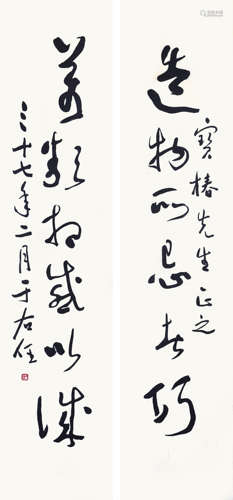 造物所忌者巧
寶椿先生正之
萬類相感以誠
三十七年二月 于右任